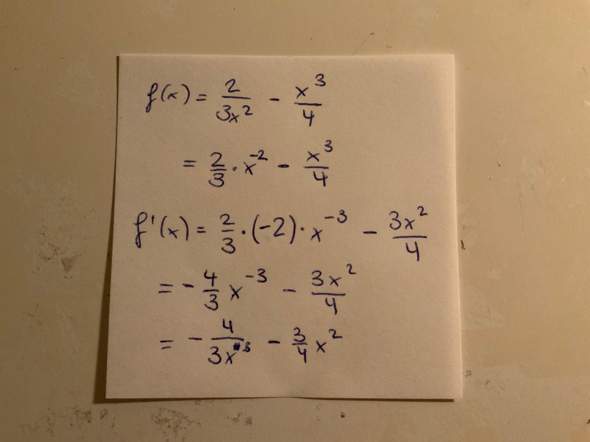 f(x) = 2/(3x²) - x³/4
= 2/3 · x⁻² - x³/4
f'(x) = 2/3 · (-2) · x⁻³ - 3x²/4
= - 4/3 x⁻³ - 3x²/4
= - 4/(3x³) - 3/4 x²